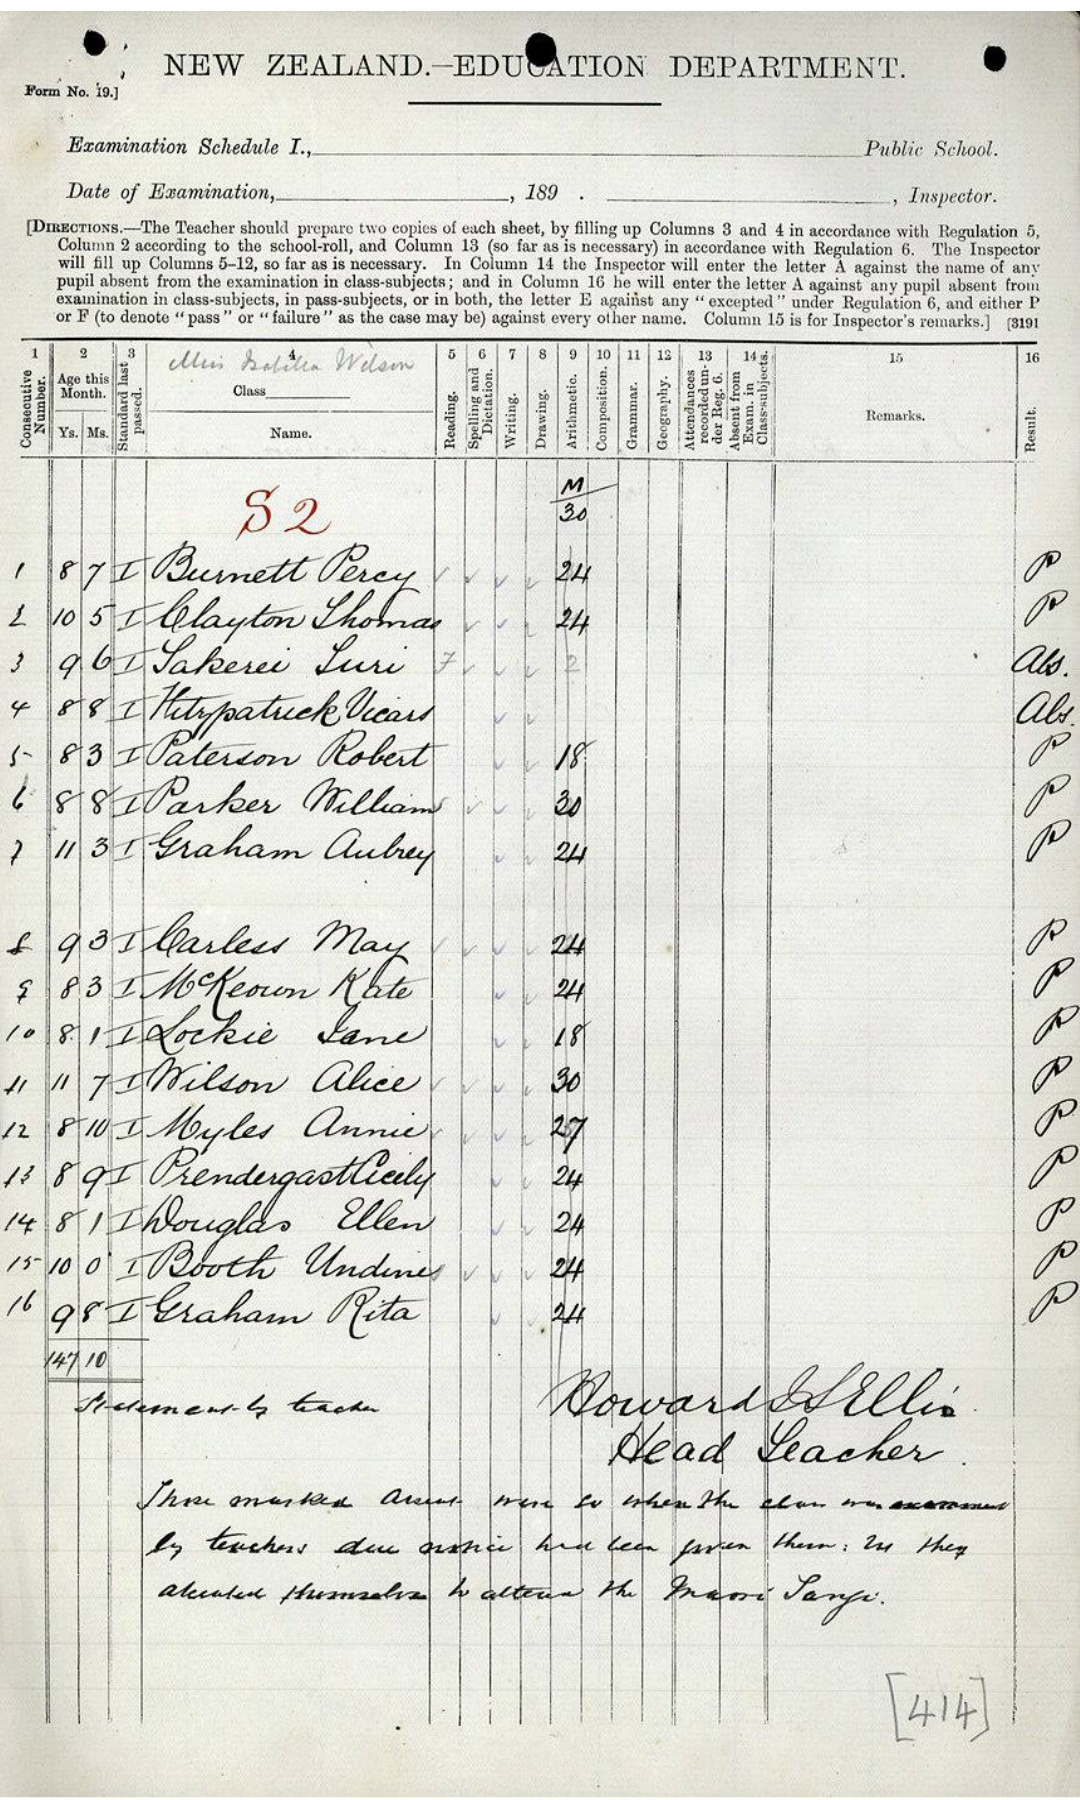 NEW ZEALAND.—EDUCATION DEPARTMENT.
Form No. 19.]
Examination Schedule I., Public School.
Date of Examination, , 189 . , Inspector.
[DIRECTIONS.—The Teacher should prepare two copies of each sheet, by filling up Columns 3 and 4 in accordance with Regulation 5,
Column 2 according to the school-roll, and Column 13 (so far as is necessary) in accordance with Regulation 6. The Inspector
will fill up Columns 5–12, so far as is necessary. In Column 14 the Inspector will enter the letter A against the name of any
pupil absent from the examination in class-subjects; and in Column 16 he will enter the letter A against any pupil absent from
examination in class-subjects, in pass-subjects, or in both, the letter E against any "excepted" under Regulation 6, and either P
or F (to denote "pass" or "failure" as the case may be) against every other name. Column 15 is for Inspector's remarks.] [3191
1 2 3 4 5 6 7 8 9 10 11 12 13 14 15 16
Miss Isabella Wilson
Consecutive Number. Age this Month. Ys. Ms. Standard last passed. Class Name. Reading. Spelling and Dictation. Writing. Drawing. Arithmetic. Composition. Grammar. Geography. Attendances recorded under Reg. 6. Absent from Exam. in Class-subjects. Remarks. Result.
S 2 M/30
1 8 7 I Burnett Percy ✓ ✓ ✓ ✓ 24 P
2 10 5 I Clayton Thomas ✓ ✓ ✓ 24 P
3 9 6 I Takerei Turi 7 ✓ ✓ ✓ 2 Abs.
4 8 8 I Fitzpatrick Vicars ✓ ✓ Abs.
5 8 3 I Paterson Robert ✓ ✓ 18 P
6 8 8 I Parker William ✓ ✓ ✓ 30 P
7 11 3 I Graham Aubrey ✓ ✓ 24 P
8 9 3 I Carless May ✓ ✓ ✓ ✓ 24 P
9 8 3 I McKeown Kate ✓ ✓ 24 P
10 8 1 I Lockie Jane ✓ ✓ 18 P
11 11 7 I Wilson Alice ✓ ✓ ✓ ✓ 30 P
12 8 10 I Myles Annie ✓ ✓ ✓ ✓ 27 P
13 8 9 I Prendergast Cicely ✓ ✓ 24 P
14 8 1 I Douglas Ellen ✓ ✓ 24 P
15 10 0 I Booth Undine ✓ ✓ ✓ ✓ 24 P
16 9 8 I Graham Rita ✓ ✓ 24 P
147 10
Statement by teacher
Howard J S Ellis
Head Teacher.
Those marked absent were so when the class was examined
by teachers due notice had been given them: but they
absented themselves to attend the Maori Tangi.
[414]